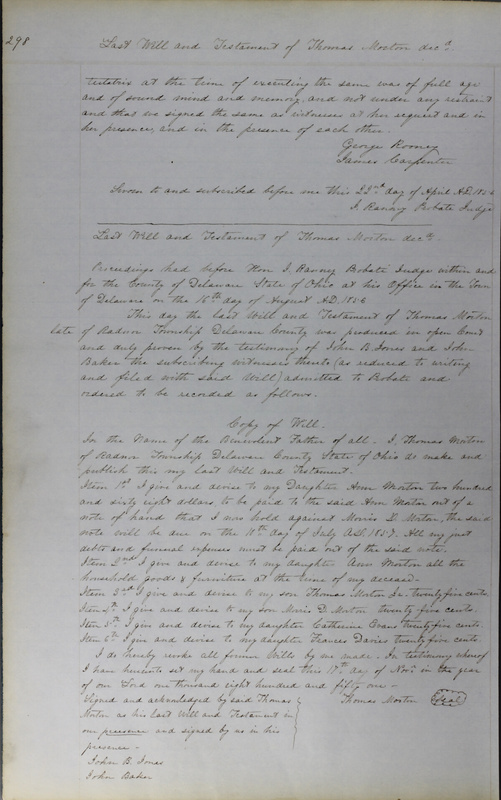 298
Last Will and Testament of Thomas Morton decd.
testatrix at the time of executing the same was of full age
and of sound mind and memory, and not under any restraint
and that we signed the same as witnesses at her request and in
her presence, and in the presence of each other.
George Rooney
James Carpenter
Sworn to and subscribed before me this 23rd day of April A.D. 1856
J. Ranney Probate Judge
Last Will and Testament of Thomas Morton decd.
Proceedings had before Hon J. Ranney Probate Judge within and
for the County of Delaware State of Ohio at his Office in the Town
of Delaware on the 16th day of August A.D. 1856
This day the Last Will and Testament of Thomas Morton
late of Radnor Township Delaware County was produced in open Court
and duly proven by the testimony of John B. Jones and John
Baker the subscribing witnesses thereto (as reduced to writing
and filed with said Will) admitted to Probate and
ordered to be recorded as follows.
Copy of Will.
In the Name of the Benevolent Father of all. I, Thomas Morton
of Radnor Township Delaware County State of Ohio do make and
publish this my last Will and Testament.
Item 1st I give and devise to my Daughter Ann Morton two hundred
and sixty eight dollars to be paid to the said Ann Morton out of a
note of hand that I now hold against Morris D. Morton, the said
note will be due on the 18th day of July A.D. 1857. All my just
debts and funeral expenses must be paid out of the said note.
Item 2nd I give and devise to my daughter Ann Morton all the
household goods & furniture at the time of my decease.
Item 3rd I give and devise to my son Thomas Morton Jr. twenty five cents.
Item 4th I give and devise to my son Morris D. Morton twenty five cents.
Item 5th I give and devise to my daughter Catherine Evans twenty five cents.
Item 6th I give and devise to my daughter Frances Davies twenty five cents.
I do hereby revoke all former Wills by me made. In testimony whereof
I have hereunto set my hand and seal this 18th day of Novr. in the year
of our Lord one thousand eight hundred and fifty one.
Signed and acknowledged by said Thomas Thomas Morton Seal
Morton as his Last Will and Testament in
our presence and signed by us in his
presence.
John B. Jones
John Baker